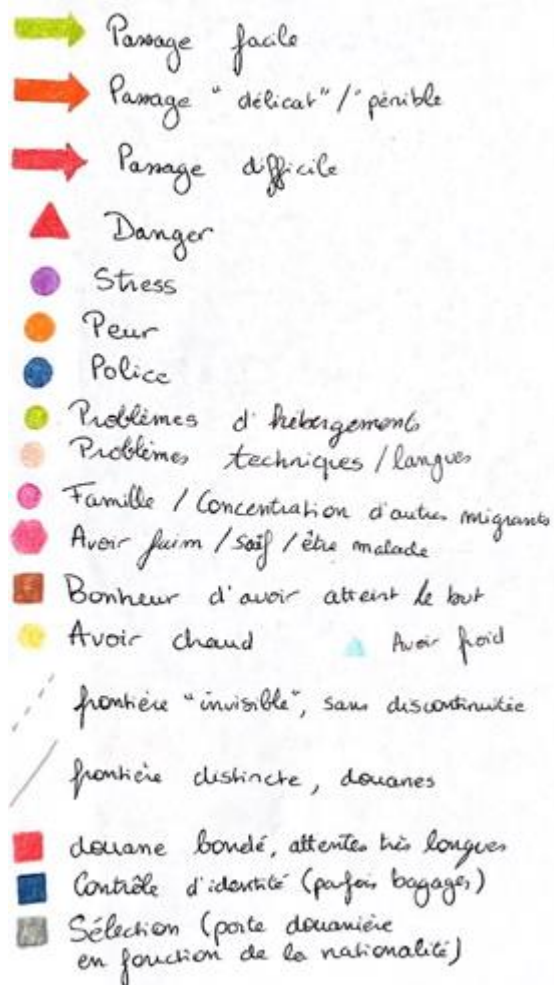 Passage facile
Passage "délicat" / "pénible
Passage difficile
Danger
Stress
Peur
Police
Problèmes d'hébergements
Problèmes techniques / langues
Famille / Concentration d'autres migrants
Avoir faim / soif / être malade
Bonheur d'avoir atteint le but
Avoir chaud Avoir froid
frontière "invisible", sans discontinuitée
frontière distincte, douanes
douane bondé, attentes très longues
Contrôle d'identité (parfois bagages)
Sélection (porte douanière
en fonction de la nationalité)